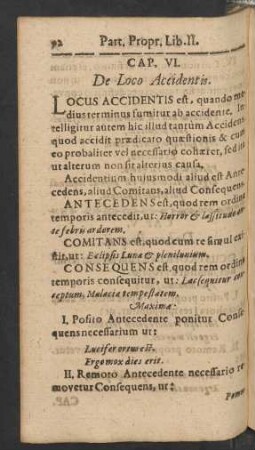 92 Part. Propr. Lib. II.
CAP. VI.
De Loco Accidentis.
LOCUS ACCIDENTIS est, quando me-
dius terminus sumitur ab accidente. In-
telligitur autem hic illud tantum Accidens
quod accidit prædicato quæstionis & cum
eo probabiliter vel necessario cohæret, sed ita
ut alterum non sit alterius causa,
Accidentium hujusmodi aliud est Ante-
cedens, aliud Comitans, aliud Consequens.
ANTECEDENS est, quod rem ordine
temporis antecedit, ut: Horror & lassitudo an-
te febris ardorem.
COMITANS est, quod cum re simul exi-
stit, ut: Eclipsis Lunæ & plenilunium.
CONSEQUENS est, quod rem ordine
temporis consequitur, ut: Lac sequitur con-
ceptum, Malacia tempestatem.
Maximæ
I. Posito Antecedente ponitur Conse-
quens necessarium ut:
Lucifer ortus est.
Ergo mox dies erit.
II. Remoto Antecedente necessario re-
movetur Consequens, ut: